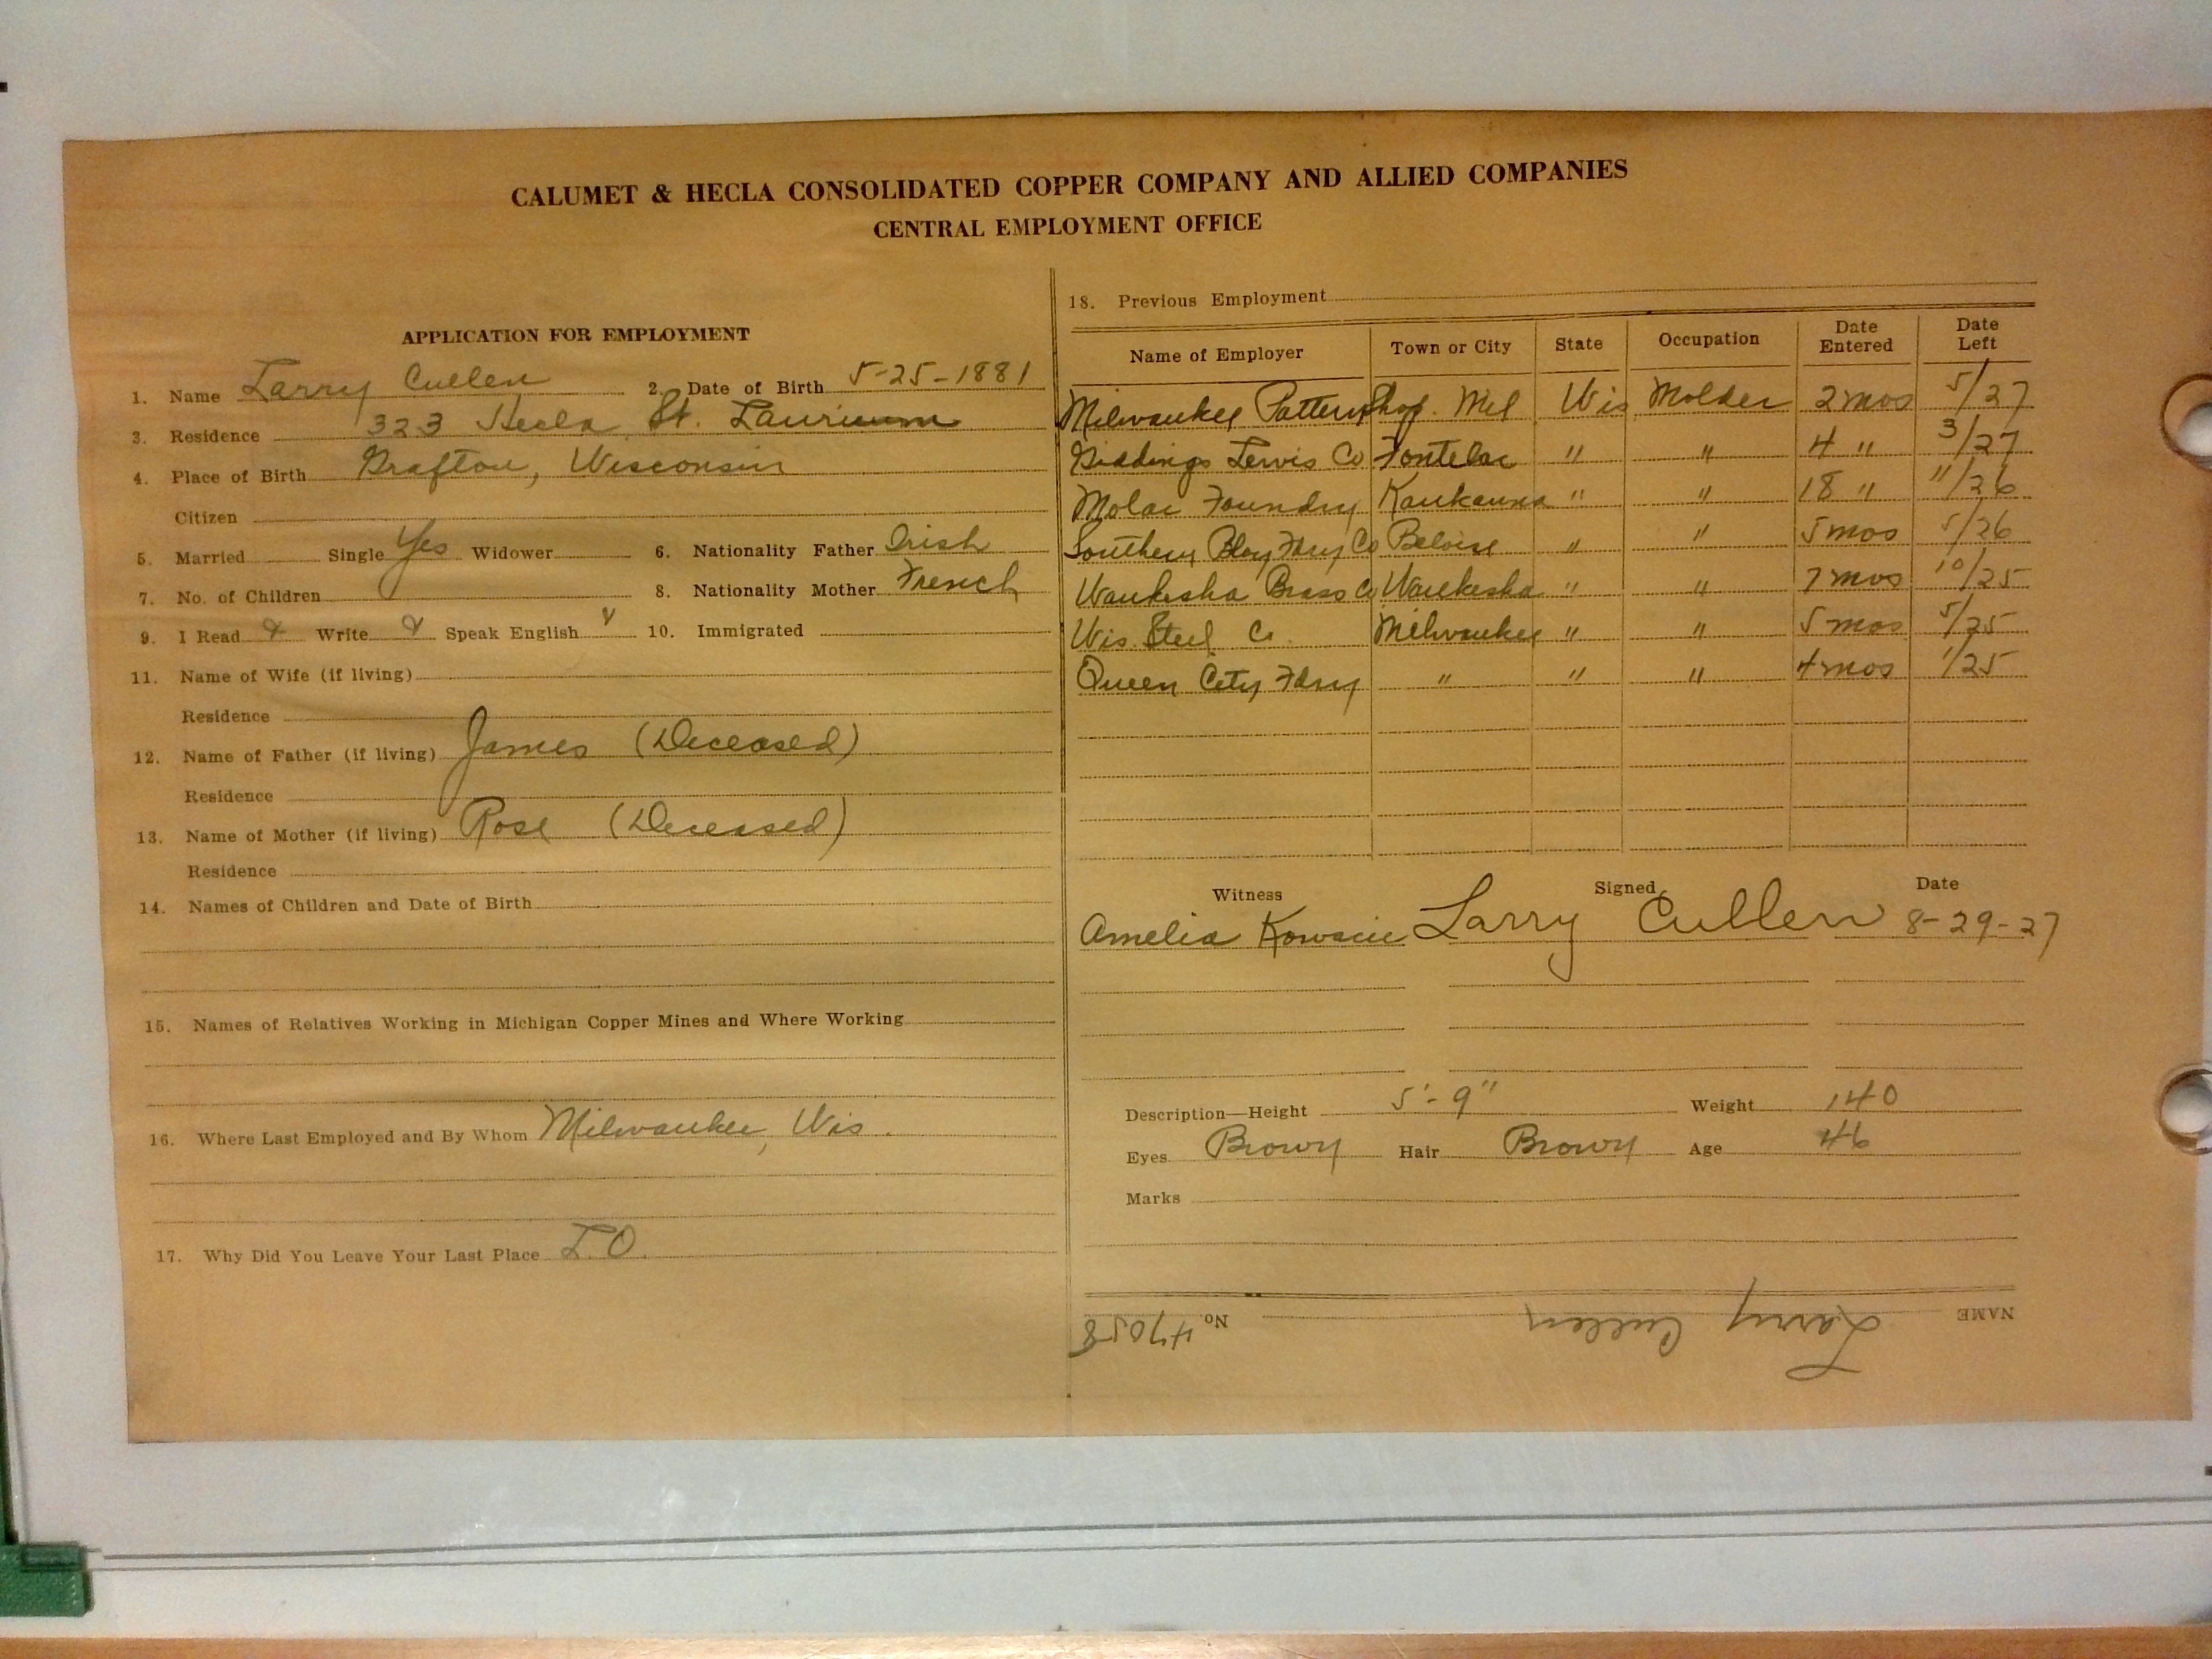 CALUMET & HECLA CONSOLIDATED COPPER COMPANY AND ALLIED COMPANIES
CENTRAL EMPLOYMENT OFFICE
APPLICATION FOR EMPLOYMENT
1. Name Larry Cullen 2. Date of Birth 5-25-1881
3. Residence 323 Hecla St. Laurium
4. Place of Birth Grafton, Wisconsin
Citizen
5. Married Single Yes Widower 6. Nationality Father Irish
7. No. of Children 8. Nationality Mother French
9. I Read Y Write Y Speak English Y 10. Immigrated
11. Name of Wife (if living)
Residence
12. Name of Father (if living) James (Deceased)
Residence
13. Name of Mother (if living) Rose (Deceased)
Residence
14. Names of Children and Date of Birth
15. Names of Relatives Working in Michigan Copper Mines and Where Working
16. Where Last Employed and By Whom Milwaukee, Wis.
17. Why Did You Leave Your Last Place L.O.
18. Previous Employment
Name of Employer Town or City State Occupation Date Entered Date Left
Milwaukee Pattern Shop. Mil Wis Molder 2 mos 5/27
Giddings Lewis Co Fontelac " " 4 " 3/27
Foundry Kaukauna " " 18 " 11/26
Southern Fdry Co " " 5 mos 5/26
Waukesha Brass Co Waukesha " " 7 mos 10/25
Wis. Steel Co. Milwaukee " " 5 mos 5/25
Queen City Fdry " " " 4 mos 1/25
Witness Signed Date
Amelia Larry Cullen 8-29-27
Description—Height 5'-9" Weight 140
Eyes Brown Hair Brown Age 46
Marks
NAME Larry Cullen No. 47058